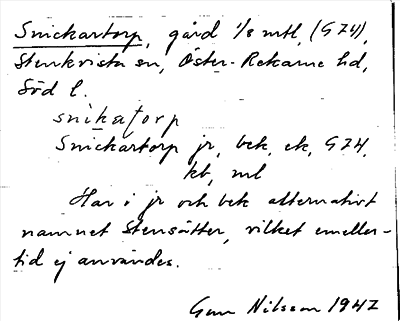 Snickartorp, gård 1/8 mtl, (G74),
Stenkvista sn, Öster-Rekarne hd,
Söd l.
snikatorp
Snickartorp jr, bek, ek, G74,
kb, ml
Har i jr och bek alternativt
namnet Stensätter, vilket emeller-
tid ej användes.
Gun Nilsson 1947